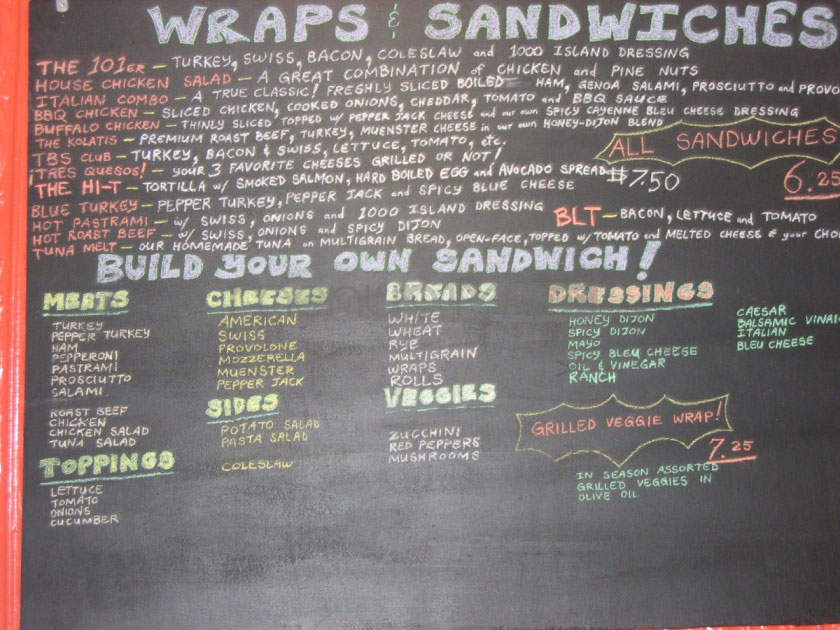 WRAPS & SANDWICHES
THE 101ER – TURKEY, SWISS, BACON, COLESLAW and 1000 ISLAND DRESSING
HOUSE CHICKEN SALAD – A GREAT COMBINATION of CHICKEN and PINE NUTS
ITALIAN COMBO – A TRUE CLASSIC! FRESHLY SLICED BOILED HAM, GENOA SALAMI, PROSCIUTTO and PROVO
BBQ CHICKEN – SLICED CHICKEN, COOKED ONIONS, CHEDDAR, TOMATO and BBQ SAUCE
BUFFALO CHICKEN – THINLY SLICED, TOPPED w/ PEPPER JACK CHEESE and our own SPICY CAYENNE BLEU CHEESE DRESSING
THE KOLATIS – PREMIUM ROAST BEEF, TURKEY, MUENSTER CHEESE in our own HONEY-DIJON BLEND
TBS CLUB – TURKEY, BACON & SWISS, LETTUCE, TOMATO, etc.
¡TRES QUESOS! – your 3 FAVORITE CHEESES GRILLED OR NOT!
THE HI-T – TORTILLA w/ SMOKED SALMON, HARD BOILED EGG and AVOCADO SPREAD $7.50
ALL SANDWICHES
6.25
BLUE TURKEY – PEPPER TURKEY, PEPPER JACK and SPICY BLUE CHEESE
HOT PASTRAMI – w/ SWISS, ONIONS and 1000 ISLAND DRESSING
BLT – BACON, LETTUCE and TOMATO
HOT ROAST BEEF – w/ SWISS, ONIONS and SPICY DIJON
TUNA MELT – OUR HOMEMADE TUNA on MULTIGRAIN BREAD, OPEN-FACE, TOPPED w/ TOMATO and MELTED CHEESE & your CHO
BUILD YOUR OWN SANDWICH!
MEATS
TURKEY
PEPPER TURKEY
HAM
PEPPERONI
PASTRAMI
PROSCIUTTO
SALAMI
ROAST BEEF
CHICKEN
CHICKEN SALAD
TUNA SALAD
TOPPINGS
LETTUCE
TOMATO
ONIONS
CUCUMBER
CHEESES
AMERICAN
SWISS
PROVOLONE
MOZZERELLA
MUENSTER
PEPPER JACK
SIDES
POTATO SALAD
PASTA SALAD
COLESLAW
BREADS
WHITE
WHEAT
RYE
MULTIGRAIN
WRAPS
ROLLS
VEGGIES
ZUCCHINI
RED PEPPERS
MUSHROOMS
DRESSINGS
HONEY DIJON
SPICY DIJON
MAYO
SPICY BLEU CHEESE
OIL & VINEGAR
RANCH
CAESAR
BALSAMIC VINAI
ITALIAN
BLEU CHEESE
GRILLED VEGGIE WRAP!
7.25
IN SEASON ASSORTED
GRILLED VEGGIES IN
OLIVE OIL